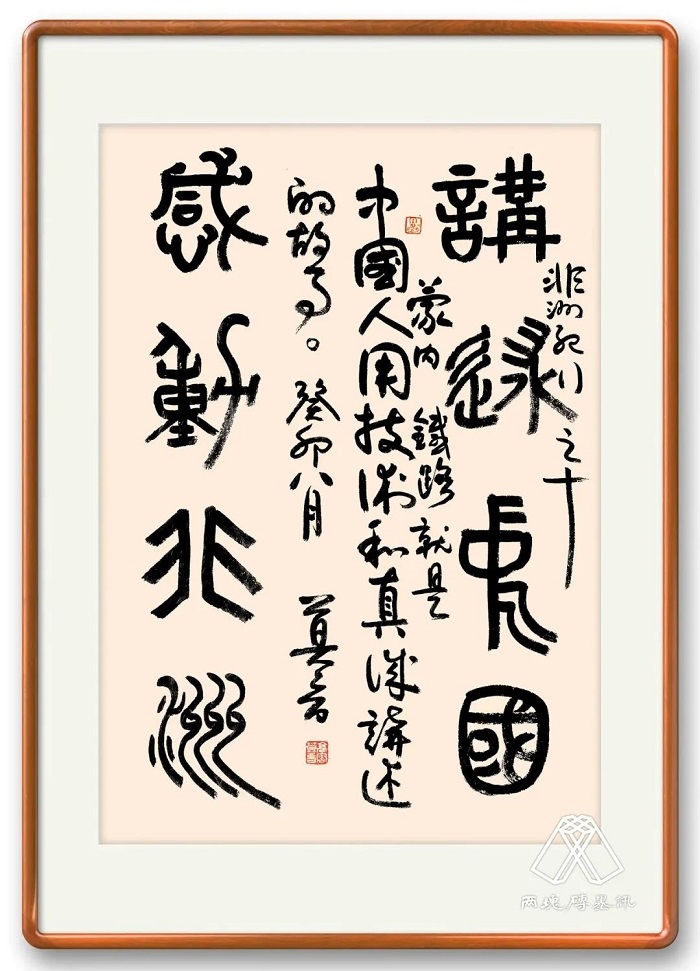 非洲紀行之十
講述中國
感動非洲
蒙内鐵路就是
中國人用技術和真誠講述
的故事。癸卯八月 莫言
两塊磚墨訊